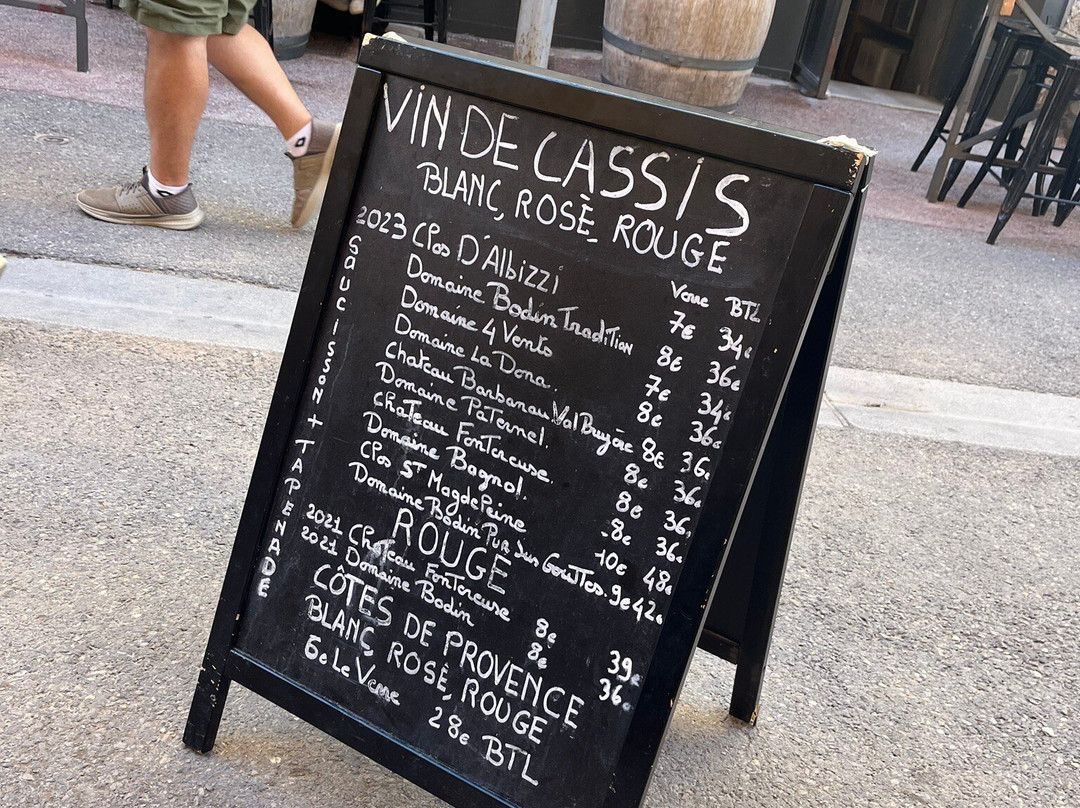 VIN DE CASSIS
BLANC, ROSÈ, ROUGE
Verre BTL
2023 Clos D'Albizzi 7€ 34€
Domaine Bodin Tradition 8€ 36€
Domaine 4 Vents 7€ 34€
Domaine La Dona. 8€ 36€
Chateau Barbanau Val Bruyère 8€ 36€
Domaine Paternel. 8€ 36€
Chateau Fontcreuse. 8€ 36€
Domaine Bagnol. 8€ 36€
Clos St Magdeleine 10€ 48€
Domaine Bodin Pur Jus Gouttes. 9€ 42€
ROUGE
2021 Chateau Fontcreuse 8€ 39€
2021 Domaine Bodin 8€ 36€
CÔTES DE PROVENCE
BLANC, ROSÈ, ROUGE
6€ Le Verre 28€ BTL
SAUCISSON + TAPENADE